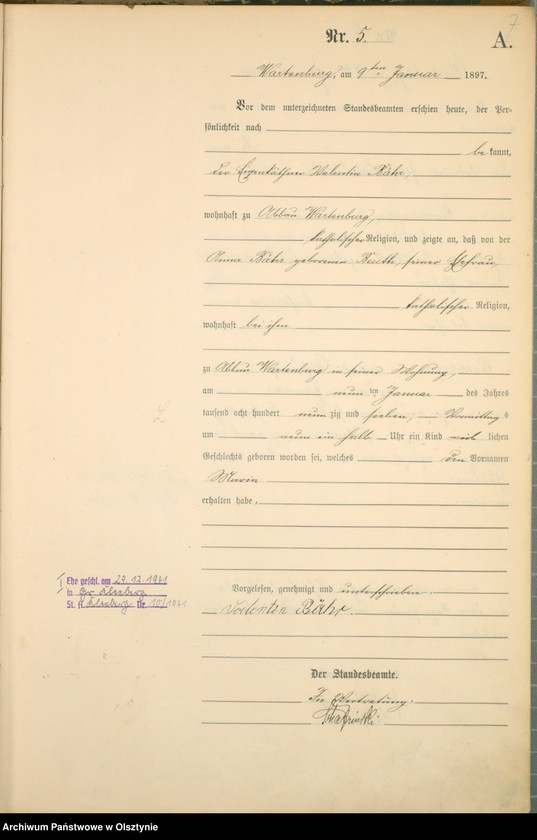 7
Nr. 5.
A.
Wartenburg, am 9ten Januar 1897.
Vor dem unterzeichneten Standesbeamten erschien heute, der Per-
sönlichkeit nach
bekannt,
der Eigenkäthner Valentin Bähr,
wohnhaft zu Abbau Wartenburg,
katholischer Religion, und zeigte an, daß von der
Anna Bähr geborenen seiner Ehefrau,
katholischer Religion,
wohnhaft bei ihm
zu Abbau Wartenburg in seiner Wohnung,
am neunten Januar des Jahres
tausend acht hundert neunzig und sieben, Vormittags
um neun ein halb Uhr ein Kind weiblichen
Geschlechts geboren worden sei, welches den Vornamen
Maria
erhalten habe.
Vorgelesen, genehmigt und unterschrieben.
Valentin Bähr.
Der Standesbeamte.
In Vertretung:
Ehe geschl. am 29.12.1941
in Gr. Kleeberg
St. A. Kleeberg Nr. 10/1941
Archiwum Państwowe w Olsztynie